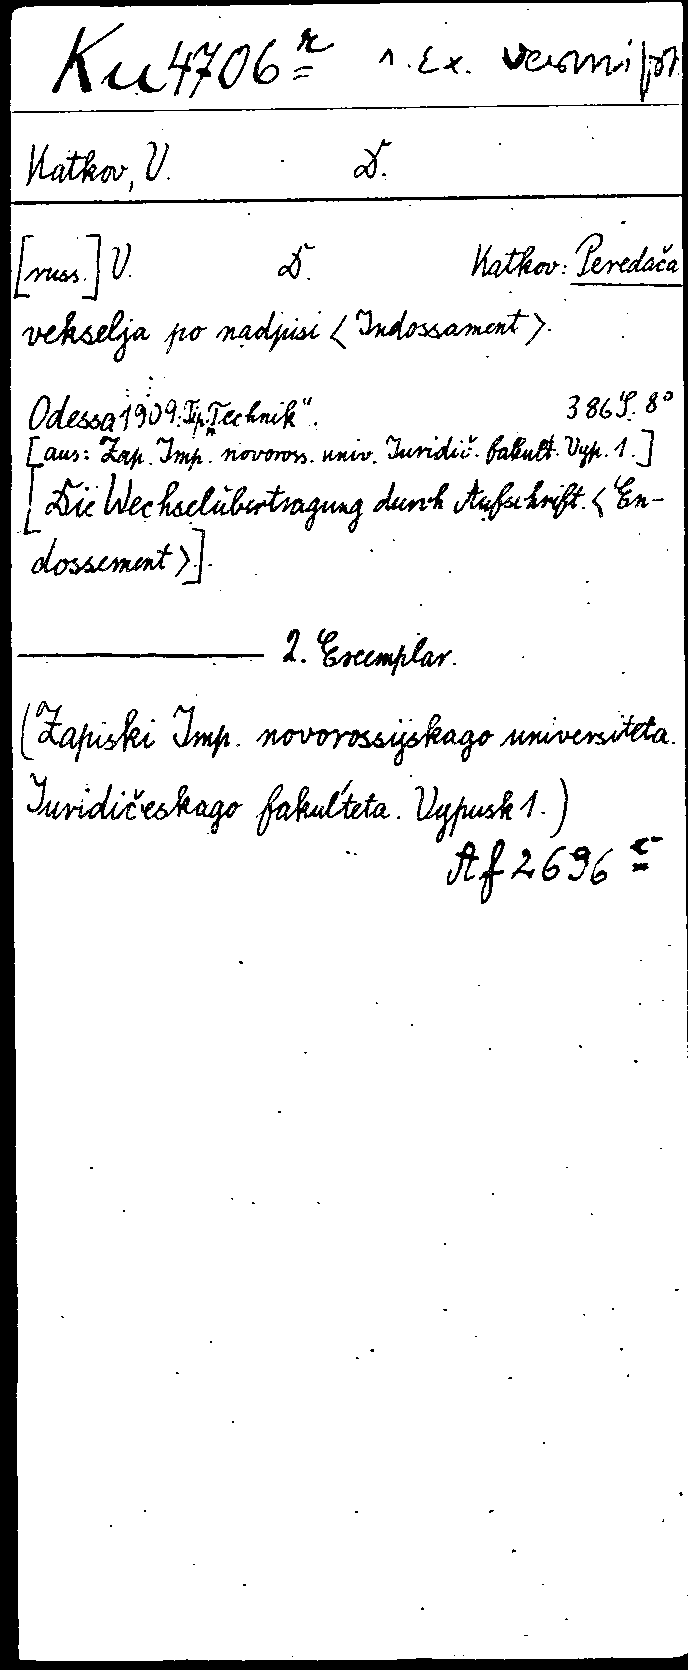 Ku 4706 n 1. Ex. vermißt
Katkov, V. D.
[russ.] V. D. Katkov: Peredača
vekselja po nadpisi < Indossament >.
Odessa 1909: Tip. "Technik". 386 S. 8°
[aus: Zap. Imp. novoross. univ. Juridič. fakult. Vyp. 1.]
[Die Wechselübertragung durch Aufschrift. < En-
dossement >.].
2. Exemplar.
(Zapiski Imp. novorossijskago universiteta.
Juridičeskago fakul'teta. Vypusk 1.)
Af 2696